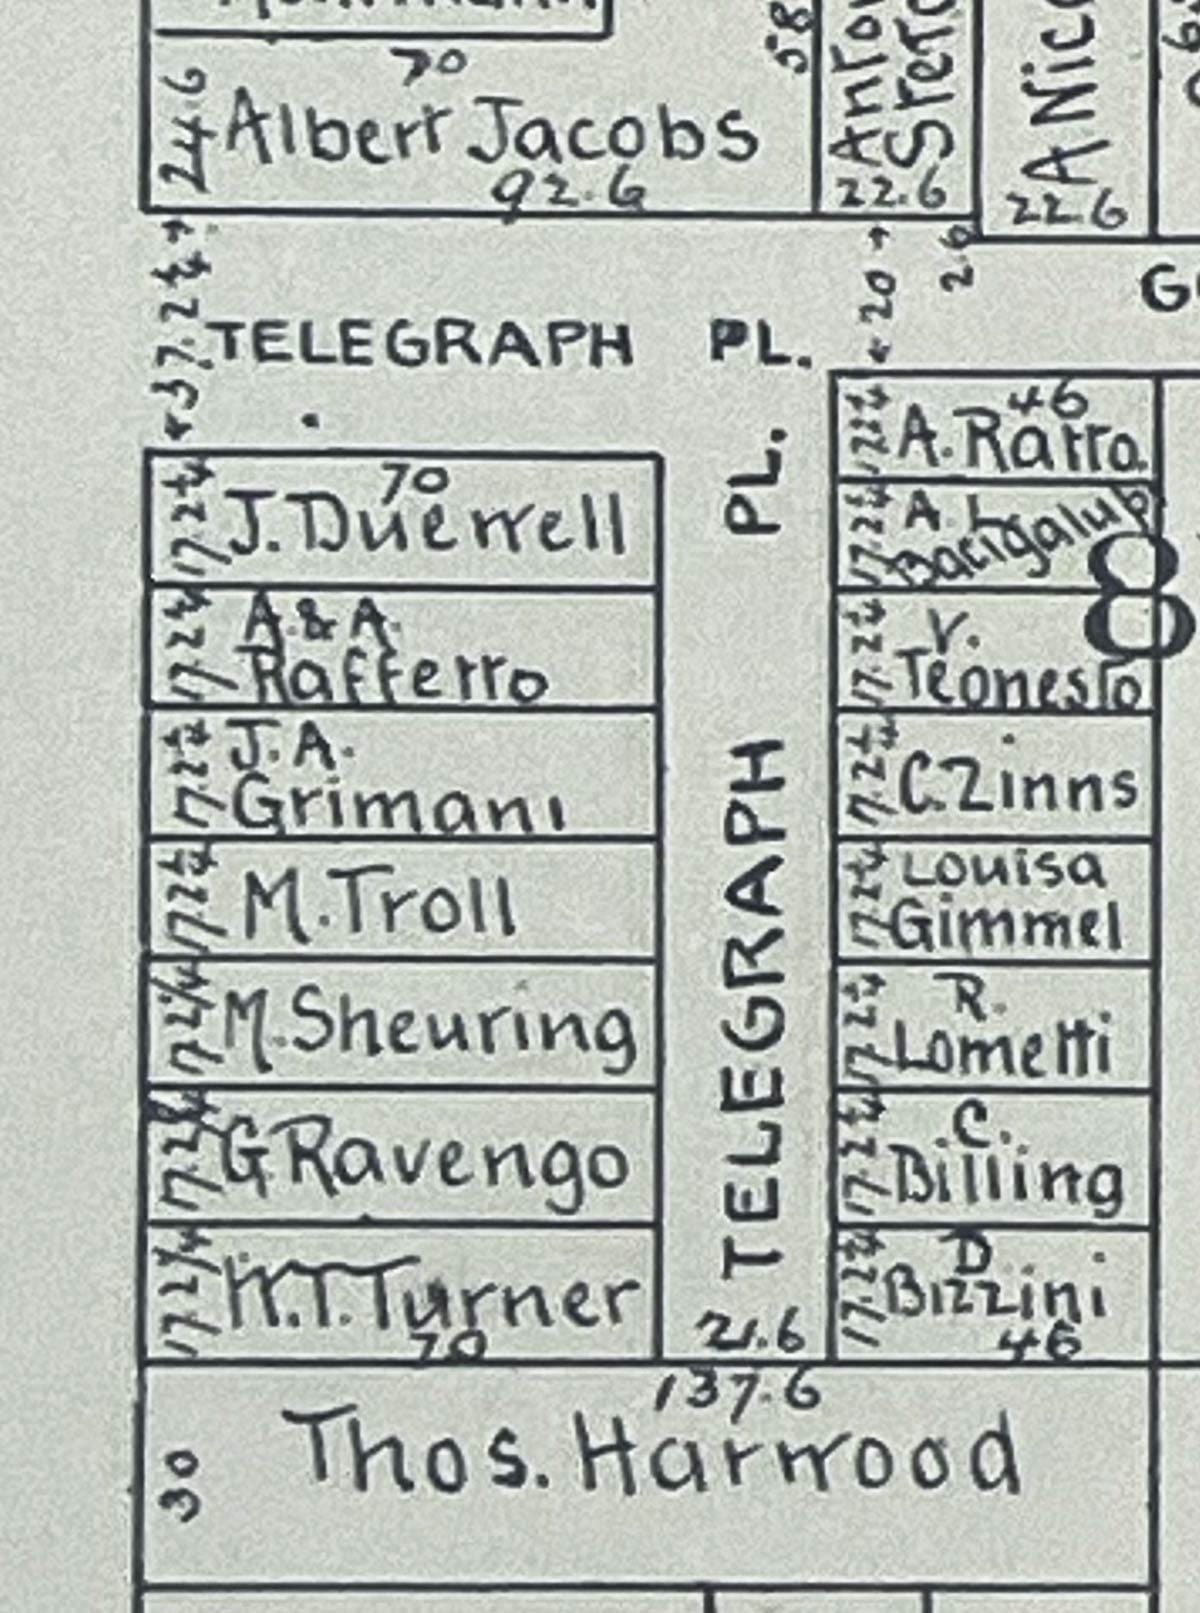 70
58
24.6
Albert Jacobs
92.6
22.6
A Nic
22.6
37.2¼
TELEGRAPH PL.
20
2.6
G
70
17.2¼
J. Duerrell
17.2¼
A. & A.
Rafferro
17.2¼
J. A.
Grimani
17.2¼
M. Troll
17.2¼
M. Sheuring
17.2¼
G Ravengo
17.2¼
W. T. Turner
70
TELEGRAPH PL.
21.6
46
17.2¼
A. Ratto
17.2¼
A. L.
Bacigalupi
8
17.2¼
V.
Teonesto
17.2¼
C. Zinns
17.2¼
Louisa
Gimmel
17.2¼
R.
Lometti
17.2¼
C.
Billing
17.2¼
D
Bizzini
46
137.6
30
Thos. Harwood